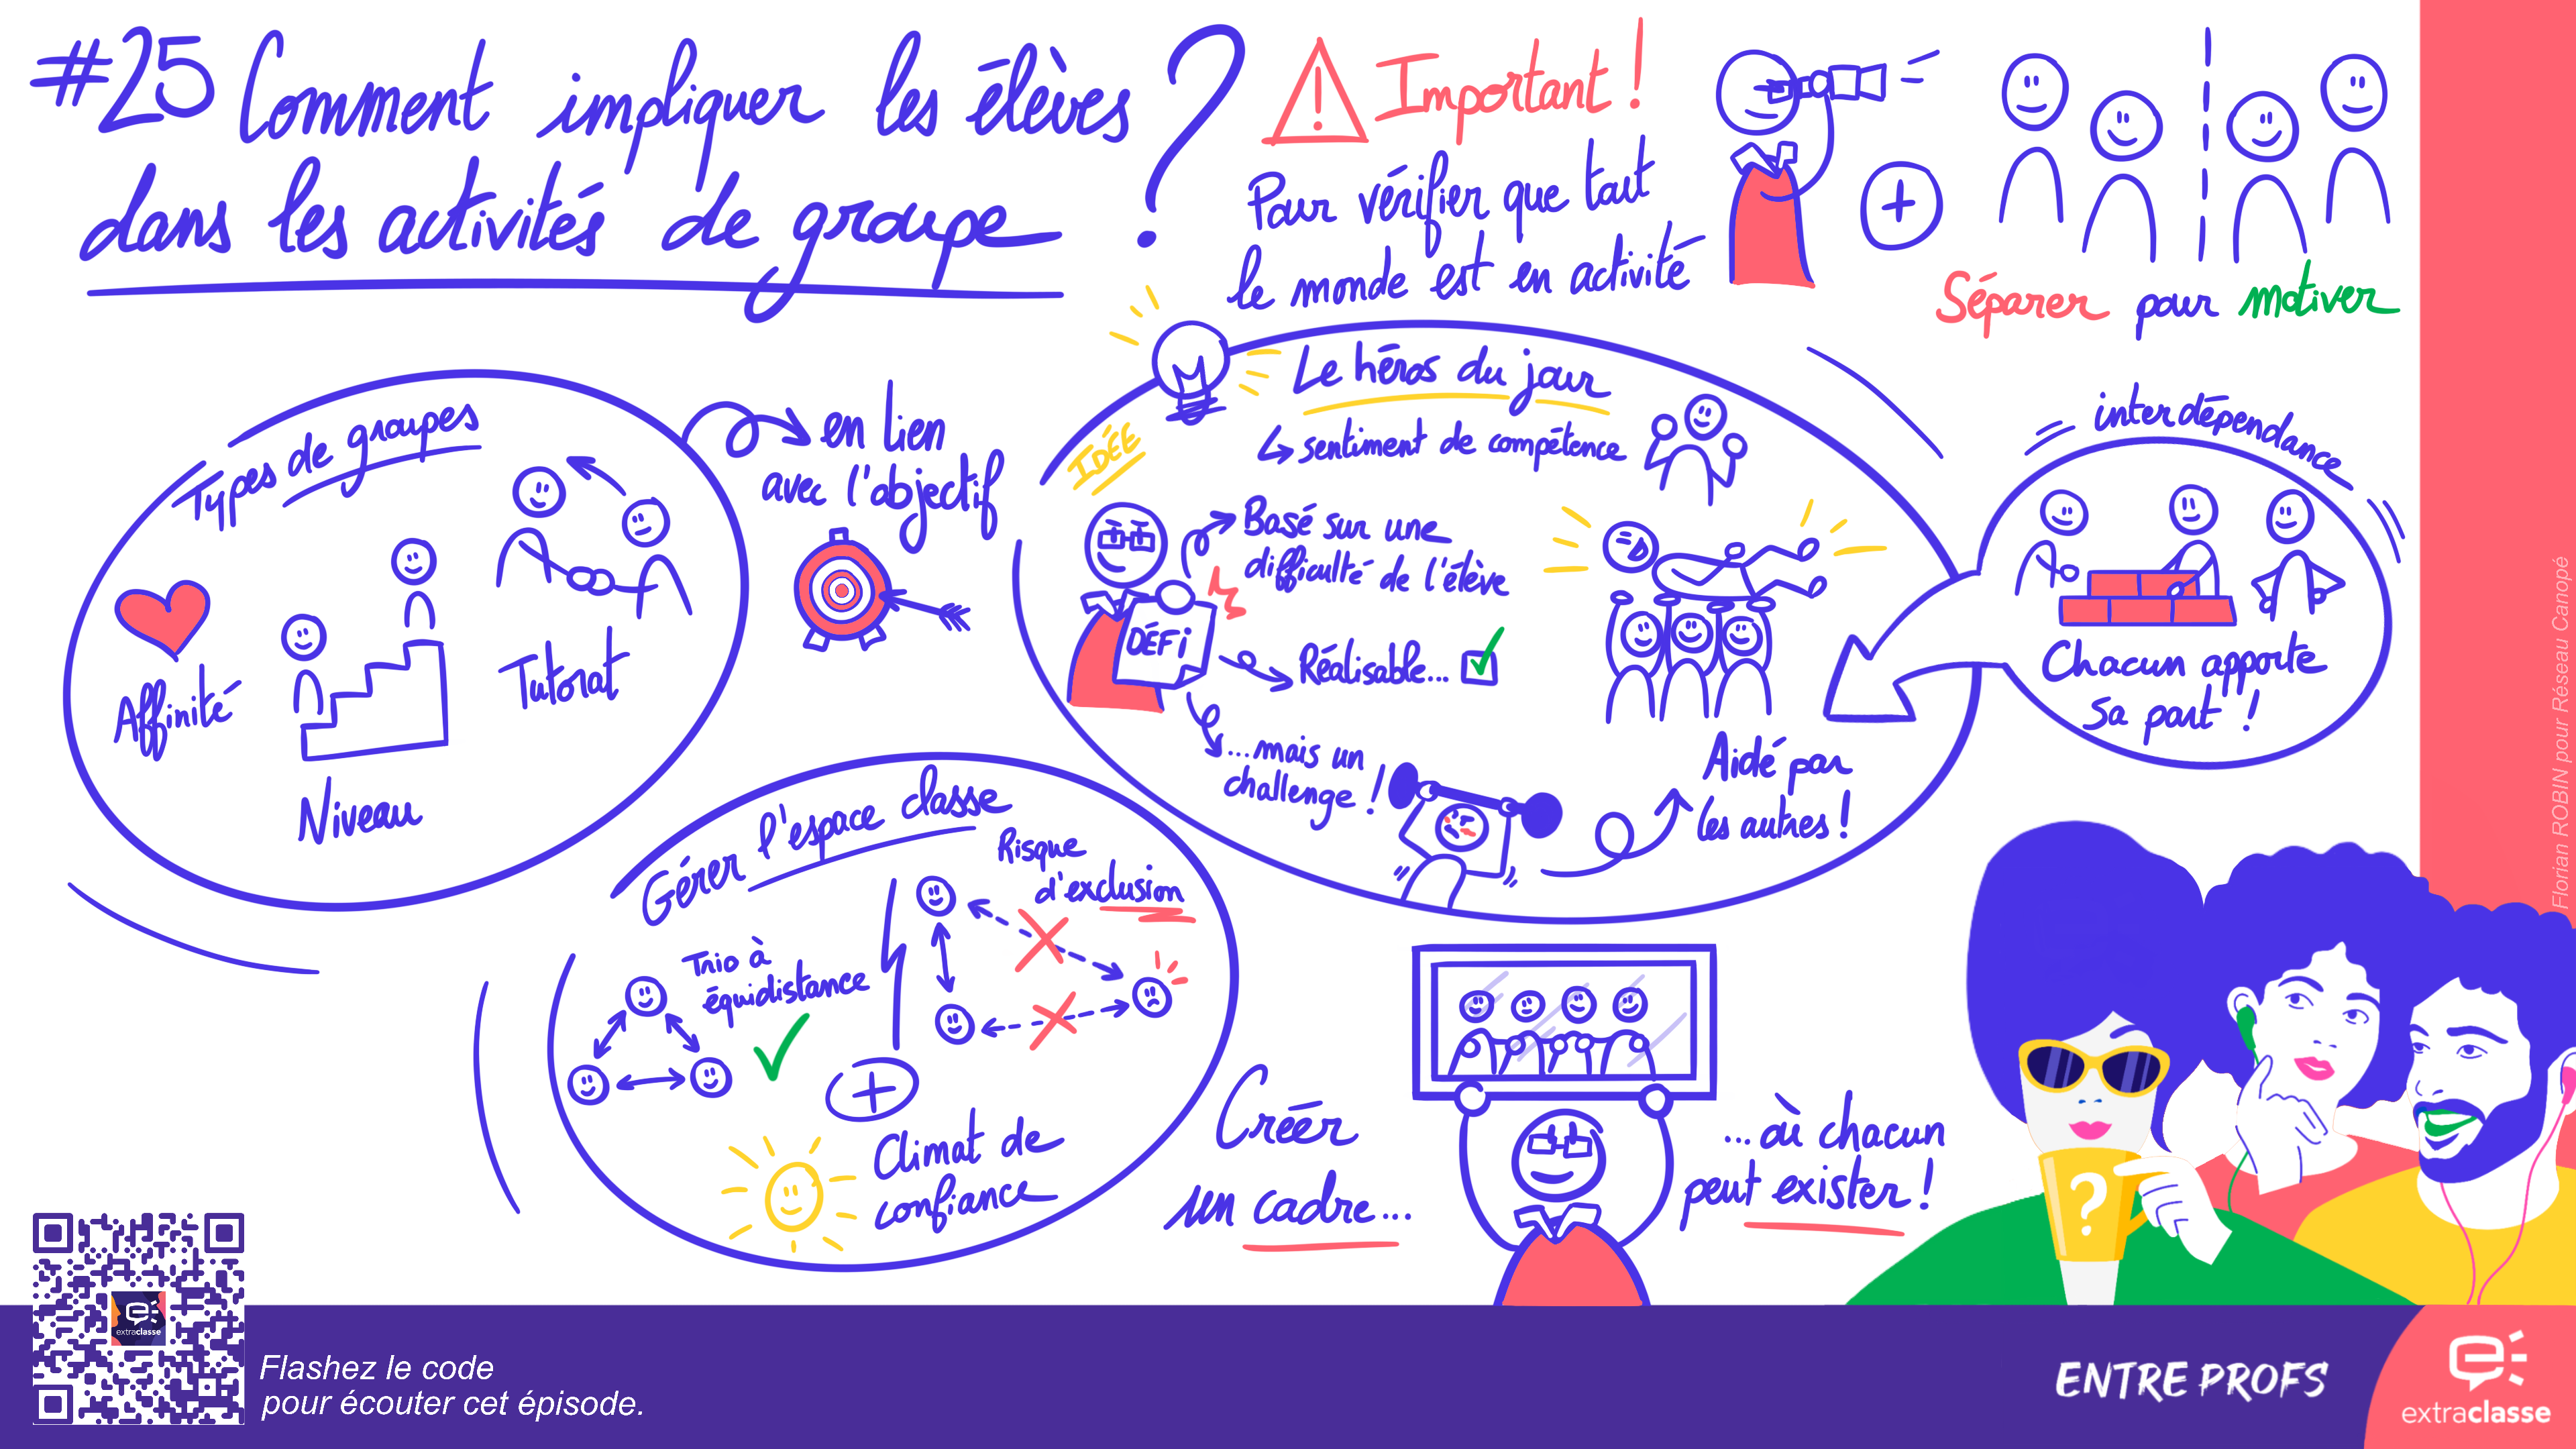 #25 Comment impliquer les élèves
dans les activités de groupe ?
Important !
Pour vérifier que tout
le monde est en activité
+
Séparer pour motiver
Types de groupes
Affinité
Niveau
Tutorat
en lien
avec l'objectif
IDÉE
Le héros du jour
sentiment de compétence
DÉFi
Basé sur une
difficulté de l'élève
Réalisable...
...mais un
challenge !
Aidé par
les autres !
interdépendance
Chacun apporte
sa part !
Gérer l'espace classe
Trio à
équidistance
Risque
d'exclusion
+
Climat de
confiance
Créer
un cadre...
...où chacun
peut exister !
?
Florian ROBIN pour Réseau Canopé
extraclasse
Flashez le code
pour écouter cet épisode.
ENTRE PROFS
extraclasse